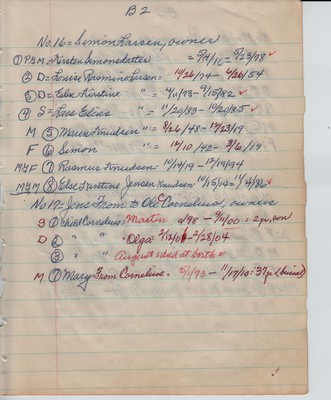 B2
No. 16 = Simon Larsen, owner
① P&M = Kirsten Simonsdatter = 9/4/16 = 5/23/98 ✓
② D = Louise Rasmine Larsen = 10/26/74 - 4/26/54
③ D = Else Kirstine " = 4/11/73 - 9/15/82 ✓
④ S = Lars Elias " = 11/20/83 - 10/20/85 ✓
M ⑤ Maren Knudsen " = 3/26/48 - 12/23/19
F ⑥ Simon " = 12/10/42 - 3/6/19
M&F ⑦ Rasmus Knudsen = 10/14/19 - 12/19/94
M&M ⑧ Else Kirstine Jensen Knudsen = 10/15/19 = 11/4/86 ✓
No. 17 - Jens From to Ole Cornelius, owners
S ① child Cornelius = Martin 2/98 - 9/11/00 = 2 yr, son
D ② " " Olga = 2/12/04 - 2/28/04
③ " " August = died at birth =
M ⑦ Mary From Cornelius = 5/1/73 - 11/17/10 = 37 yr (burial)